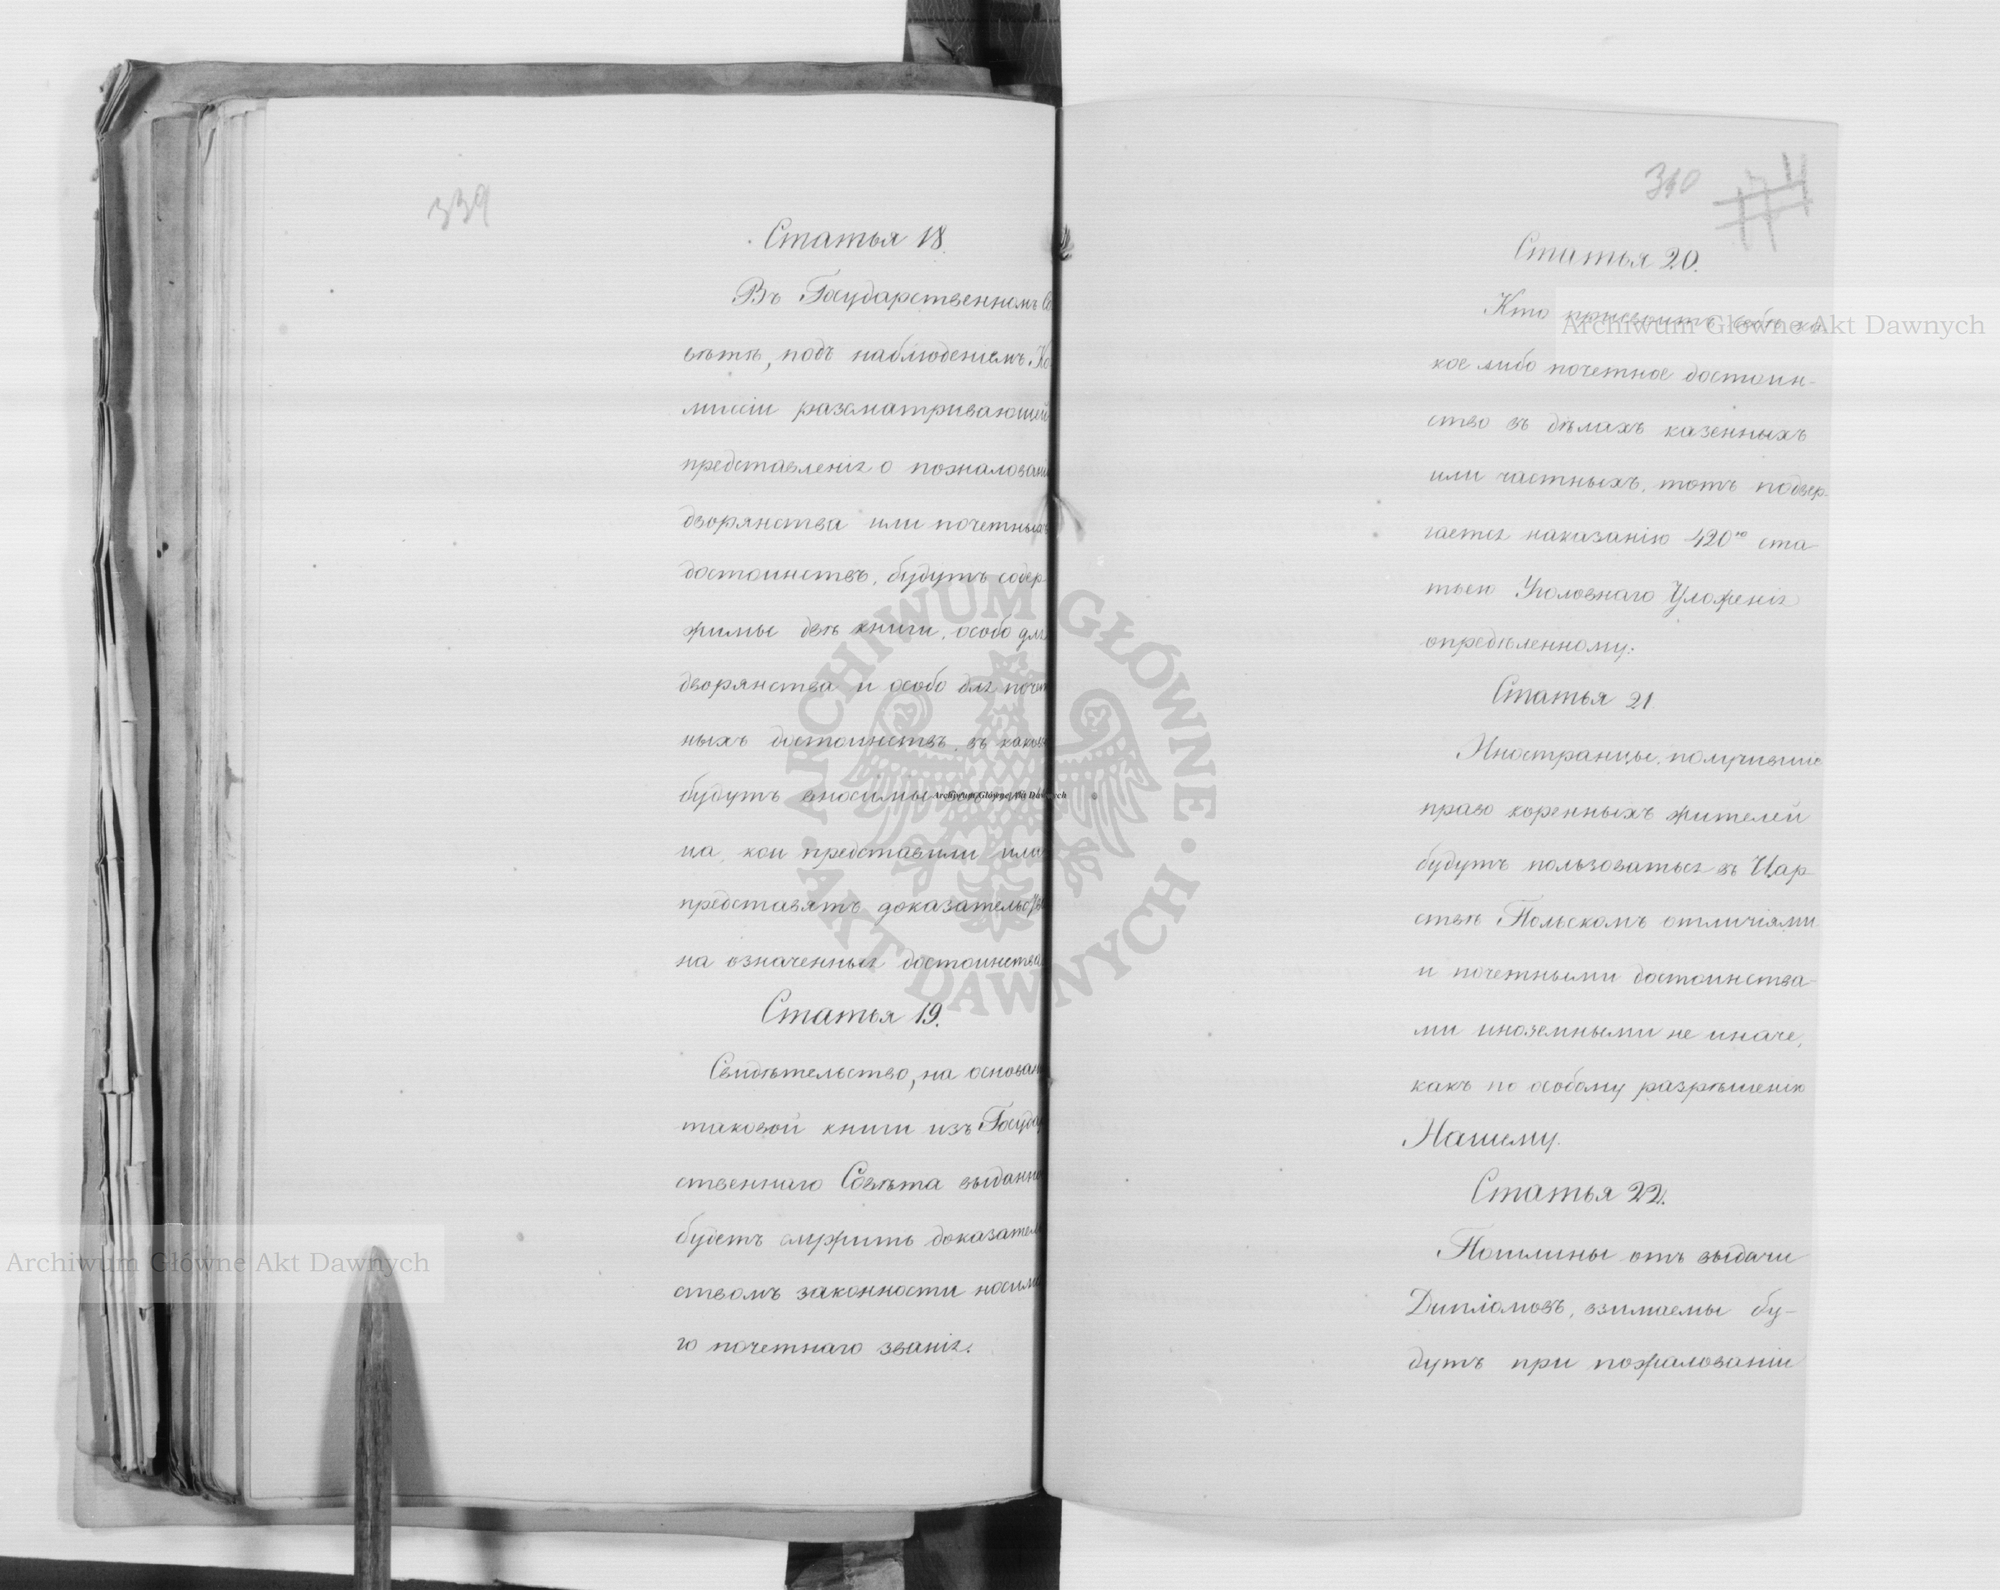 339
Статья 18.
Въ Государственномъ Со
вѣтѣ, подъ наблюденіемъ Ко
миссіи разсматривающей
представленія о пожаловані
дворянства или почетныхъ
достоинствъ, будутъ содер
жимы двѣ книги, особо для
дворянства и особо для почет
ныхъ достоинствъ, въ каков
будутъ вносимы
ца, кои представили или
представятъ доказательства
на означенныя достоинства
Статья 19.
Свидѣтельство, на основан
таковой книги изъ Госуда
ственнаго Совѣта выданно
будетъ служить доказатель
ствомъ законности носима
го почетнаго званія.
340
Статья 20.
Кто присвоитъ себѣ ка
кое либо почетное достоин-
ство въ дѣлахъ казенныхъ
или частныхъ, тотъ подвер-
гается наказанію 420ю ста
тьею Уголовнаго Уложенія
опредѣленному.
Статья 21.
Иностранцы, получившіе
право коренныхъ жителей
будутъ пользоваться въ Цар
ствѣ Польскомъ отличіями
и почетными достоинства-
ми иноземными не иначе,
какъ по особому разрѣшенію
Нашему.
Статья 22.
Пошлины отъ выдачи
Дипломовъ, взимаемы бу-
дутъ при пожалованіи
Archiwum Główne Akt Dawnych
Archiwum Główne Akt Dawnych
Archiwum Główne Akt Dawnych
ARCHIWUM GŁÓWNE · AKT DAWNYCH ·